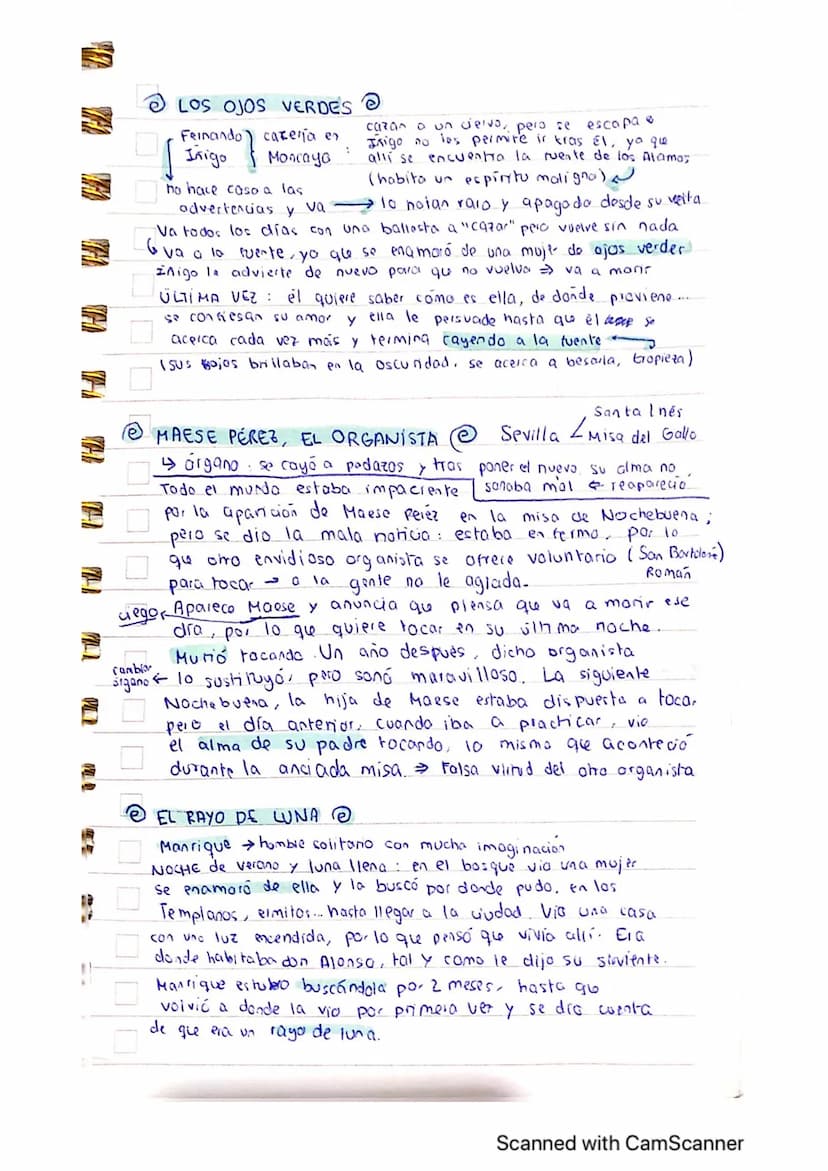 LOS OJOS VERDES
Fernando
Iñigo
cacería en
Moncayo :
cazan a un ciervo, pero se escapa e
Iñigo no les permite ir tras él, ya que
allí se encuentra la fuente de los Álamos
(habita un espíritu maligno)
no hace caso a las
advertencias y va → lo notan raro y apagado desde su vuelta
Va todos los días con una ballesta a "cazar" pero vuelve sin nada
↳ va a la fuente, ya que se enamoró de una mujer de ojos verdes
Iñigo le advierte de nuevo para que no vuelva ⇒ va a morir
ÚLTIMA VEZ : él quiere saber cómo es ella, de donde proviene...
se confiesan su amor y ella le persuade hasta que él se
acerca cada vez más y termina cayendo a la fuente
(sus ojos brillaban en la oscuridad, se acerca a besarla, tropieza)
MAESE PÉREZ, EL ORGANISTA
Sevilla
Santa Inés
Misa del Gallo
↳ órgano : se cayó a pedazos y tras poner el nuevo su alma no
sonaba mal ← reapareció
Todo el mundo estaba impaciente
por la aparición de Maese Peréz en la misa de Nochebuena ;
pero se dio la mala noticia : estaba enfermo, por lo
que otro envidioso organista se ofrece voluntario (San Bartolomé)
Román
para tocar → a la gente no le agrada.
ciego
Aparece Maese y anuncia que piensa que va a morir ese
día, por lo que quiere tocar en su última noche.
Murió tocando. Un año después, dicho organista
cambiar
órgano ← lo sustituyó, pero sonó maravilloso. La siguiente
Nochebuena, la hija de Maese estaba dispuesta a tocar
pero el día anterior, cuando iba a practicar, vio
el alma de su padre tocando, lo mismo que aconteció
durante la anciada misa. ⇒ Falsa virtud del otro organista
EL RAYO DE LUNA
Manrique → hombre solitario con mucha imaginación
NOCHE de verano y luna llena : en el bosque vio una mujer
se enamoró de ella y la buscó por donde pudo, en los
Templarios, ermitas... hasta llegar a la ciudad. Vio una casa
con una luz encendida, por lo que pensó que vivía allí. Era
donde habitaba don Alonso, tal y como le dijo su sirviente.
Manrique estubo buscándola por 2 meses, hasta que
volvió a donde la vio por primera vez y se dio cuenta
de que era un rayo de luna.
Scanned with CamScanner